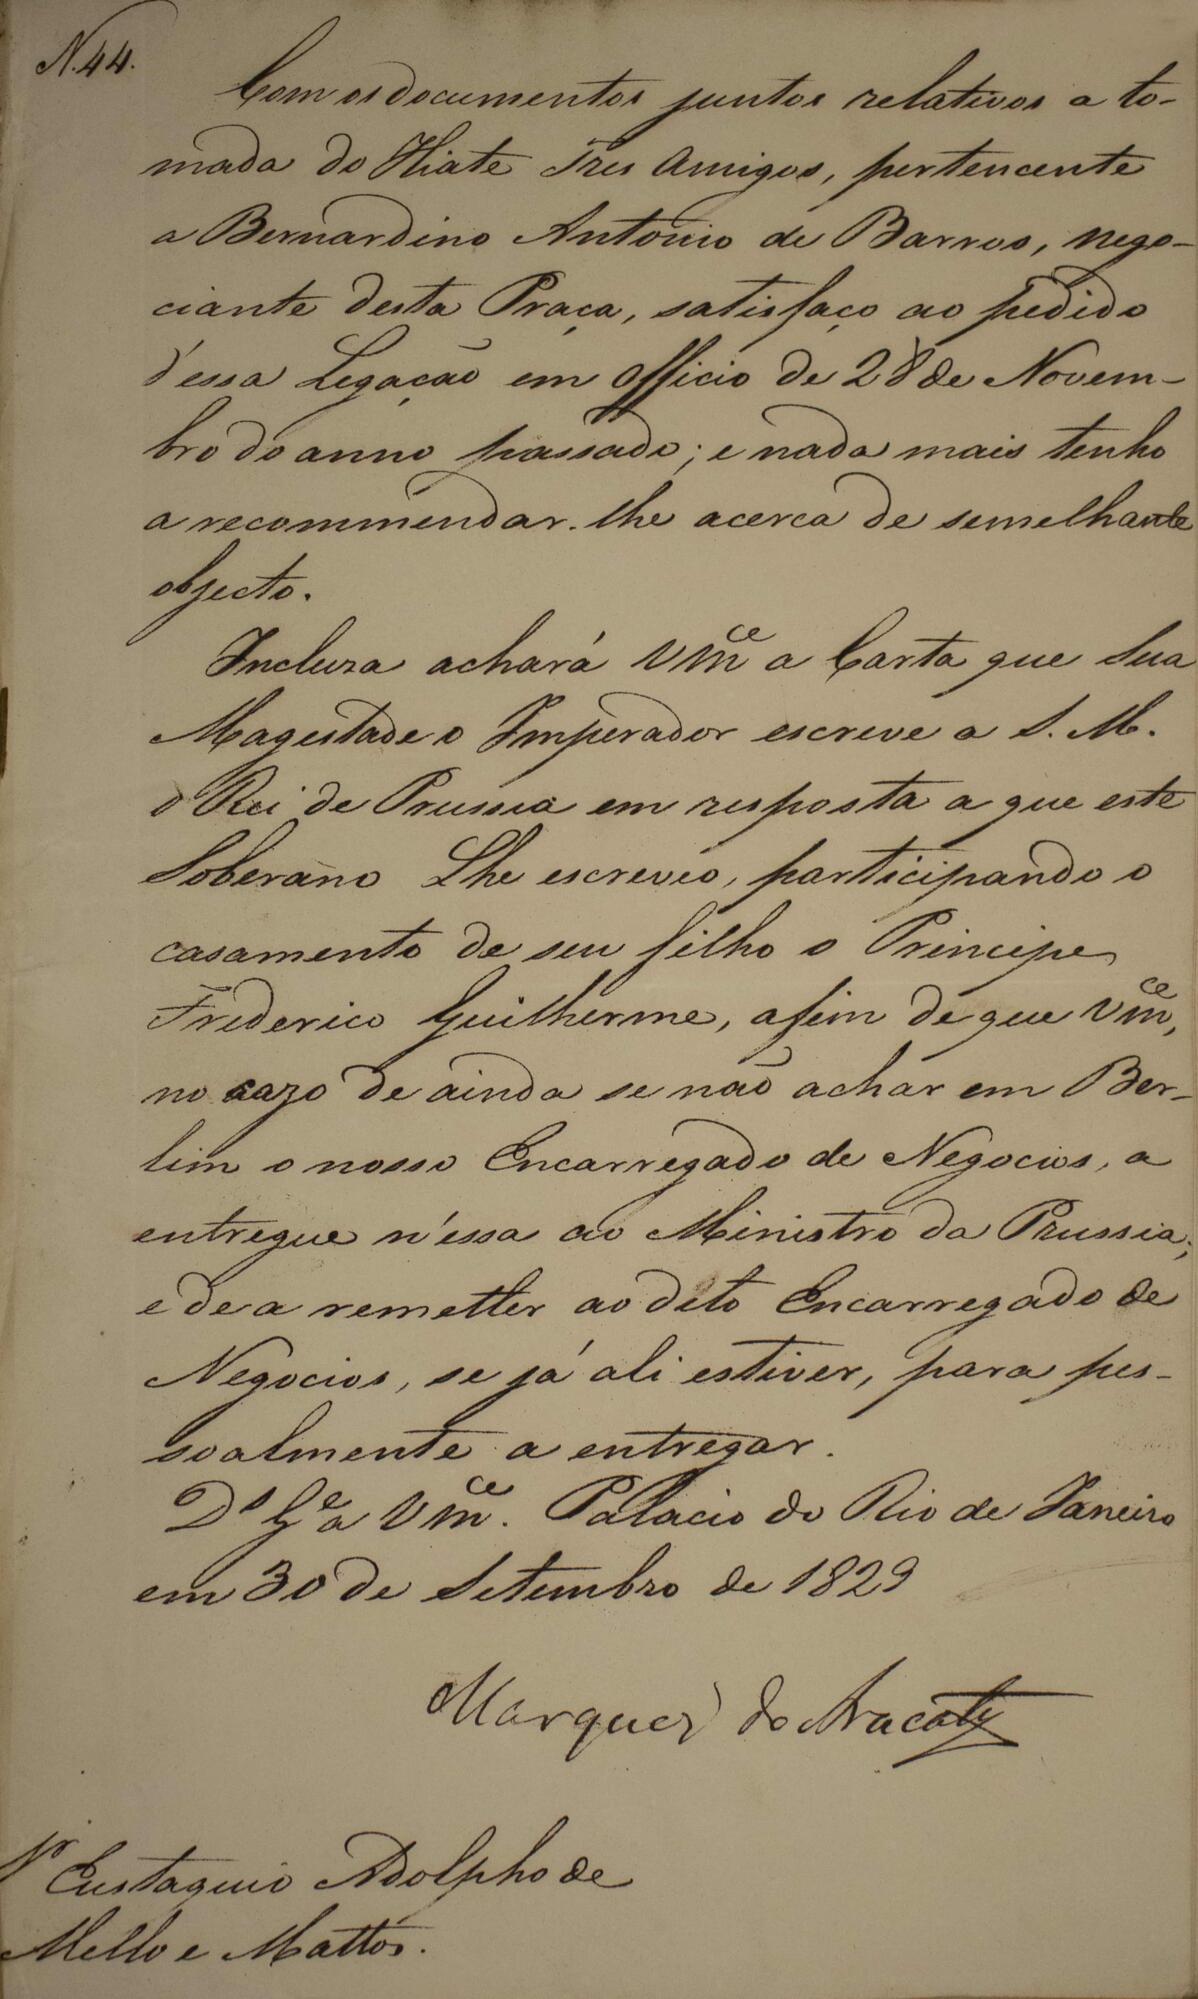 N. 44.
Com os documentos juntos relativos a to-
mada do Hiate Tres Amigos, pertencente
a Bernardino Antonio de Barros, nego-
ciante desta Praça, satisfaço ao pedido
d'essa Legação em officio de 28 de Novem-
bro do anno passado; e nada mais tenho
a recommendar-lhe acerca de semelhante
objecto.
Incluza achará Vm.ce a Carta que Sua
Magestade o Imperador escreve a S. M.
o Rei de Prussia em resposta a que este
Soberano Lhe escreveo, participando o
casamento de seu filho o Principe
Frederico Guilherme, afim de que Vm.ce,
no cazo de ainda se não achar em Ber-
lim o nosso Encarregado de Negocios, a
entregue n'essa ao Ministro da Prussia;
e de a remetter ao dito Encarregado de
Negocios, se já ali estiver, para pes-
soalmente a entregar.
D.s G.e a Vm.ce. Palacio do Rio de Janeiro
em 30 de Setembro de 1829
Marquez do Aracaty
Eustaquio Adolpho de
Mello e Mattos.